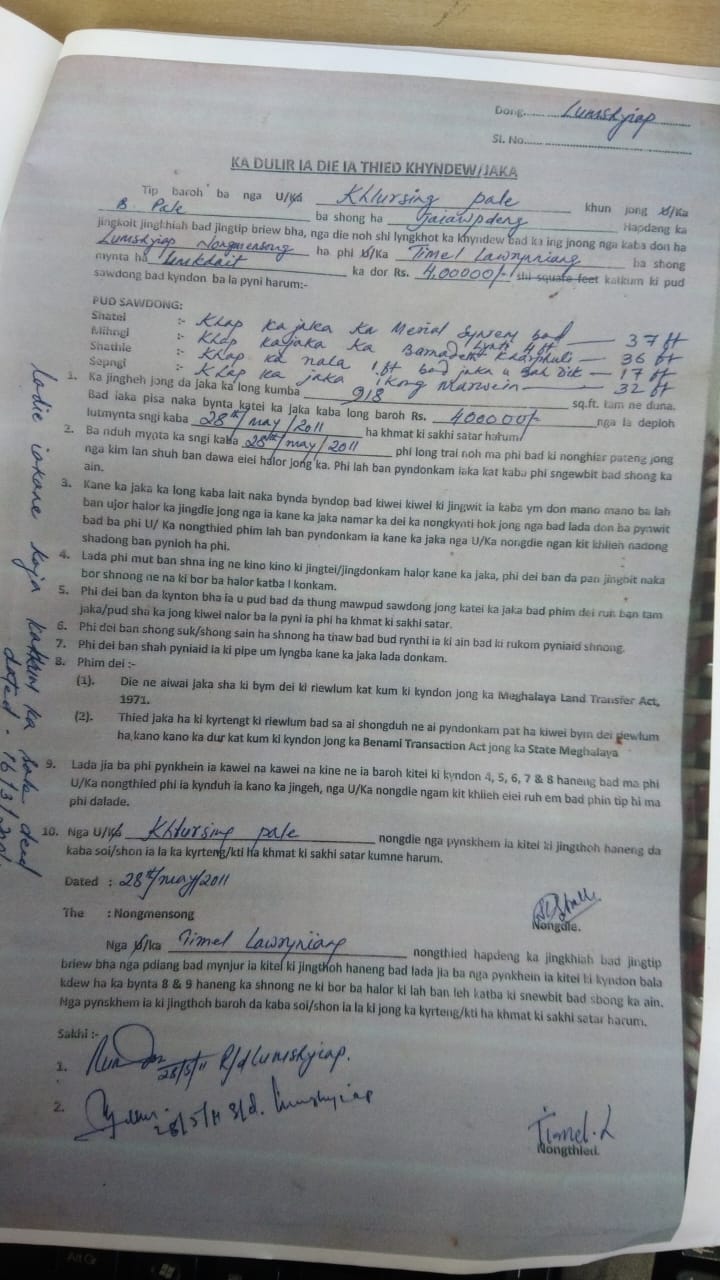 Dong........ Lumshyiap
Sl. No.........
KA DULIR IA DIE IA THIED KHYNDEW/JAKA
Tip baroh ba nga U/Ka Khlursing pale khun jong U/Ka
B. Pale ba shong ha Jaiawpdeng Hapdeng ka
jingkoit jingkhiah bad jingtip briew bha, nga die noh shi lyngkhot ka khyndew bad ka ing jnong nga kaba don ha
Lumshyiap Nongmensong ha phi U/Ka Timel Lawryniang ba shong
mynta ha ka dor Rs. 4,00000/- shi square feet katkum ki pud
sawdong bad kyndon ba la pyni harum:-
PUD SAWDONG:
Shatei :- Khap ka jaka ka Merial Synem bad lynti 4 ft — 37 ft
Mihngi :- Khap ka jaka ka Bernadett Kharphuli — 36 ft
Shathie :- Khap ka nala 1 ft bad jaka u Bah Dik — 17 ft
Sepngi :- Khap ka jaka i Kong Marwein — 32 ft
1. Ka jingheh jong da jaka ka long kumba 918 sq.ft. tam ne duna.
Bad iaka pisa naka bynta katei ka jaka kaba long baroh Rs. 400000/- nga la deploh
lutmynta sngi kaba 28th/may/2011 ha khmat ki sakhi satar harum/
2. Ba nduh mynta ka sngi kaba 28th/may/2011 phi long trai noh ma phi bad ki nonghiar pateng jong
nga kim lan shuh ban dawa eiei halor jong ka. Phi lah ban pyndonkam iaka kat kaba phi sngewbit bad shong ka
ain.
3. Kane ka jaka ka long kaba lait naka bynda byndop bad kiwei kiwei ki jingwit ia kaba ym don mano mano ba lah
ban ujor halor ka jingdie jong nga ia kane ka jaka namar ka dei ka nongkynti hok jong nga bad lada don ba pynwit
bad ba phi U/ Ka nongthied phim lah ban pyndonkam ia kane ka jaka nga U/Ka nongdie ngan kit khlieh nadong
shadong ban pynioh ha phi.
4. Lada phi mut ban shna ing ne kino kino ki jingtei/jingdonkam halor kane ka jaka, phi dei ban da pan jingbit naka
bor shnong ne na ki bor ba halor katba I konkam.
5. Phi dei ban da kynton bha ia u pud bad da thung mawpud sawdong jong katei ka jaka bad phim dei ruh ban tam
jaka/pud sha ka jong kiwei nalor ba la pyni ia phi ha khmat ki sakhi satar.
6. Phi dei ban shong suk/shong sain ha shnong ha thaw bad bud rynthi ia ki ain bad ki rukom pyniaid shnong.
7. Phi dei ban shah pyniaid ia ki pipe um lyngba kane ka jaka lada donkam.
8. Phim dei :-
(1). Die ne aiwai jaka sha ki bym dei ki riewlum kat kum ki kyndon jong ka Meghalaya Land Transfer Act,
1971.
(2). Thied jaka ha ki kyrtengt ki riewlum bad sa ai shongduh ne ai pyndonkam pat ha kiwei bym dei riewlum
ha kano kano ka dur kat kum ki kyndon jong ka Benami Transaction Act jong ka State Meghalaya
9. Lada jia ba phi pynkhein ia kawei na kawei na kine ne ia baroh kitei ki kyndon 4, 5, 6, 7 & 8 haneng bad ma phi
U/Ka nongthied phi ia kynduh ia kano ka jingeh, nga U/Ka nongdie ngam kit khlieh eiei ruh em bad phin tip hi ma
phi dalade.
10. Nga U/Ka Khlursing pale nongdie nga pynskhem ia kitei ki jingthoh haneng da
kaba soi/shon ia la ka kyrteng/kti ha khmat ki sakhi satar kumne harum.
Dated : 28th/may/2011
Nongdie.
The : Nongmensong
Nga U/ka Timel Lawryniang nongthied hapdeng ka jingkhiah bad jingtip
briew bha nga pdiang bad mynjur ia kitei ki jingthoh haneng bad lada jia ba nga pynkhein ia kitei ki kyndon bala
kdew ha ka bynta 8 & 9 haneng ka shnong ne ki bor ba halor ki lah ban leh katba ki snewbit bad shong ka ain.
Nga pynskhem ia ki jingthoh baroh da kaba soi/shon ia la ki jong ka kyrteng/kti ha khmat ki sakhi satar harum.
Sakhi :-
1. 28/5/11 R/d Lumshyiap.
2. 28/5/11 S/d. Lumshyiap
Timel. L
Nongthied.
ladie iakane kaja katkum ka sale deed
dated - 16/3/
Alt Gr